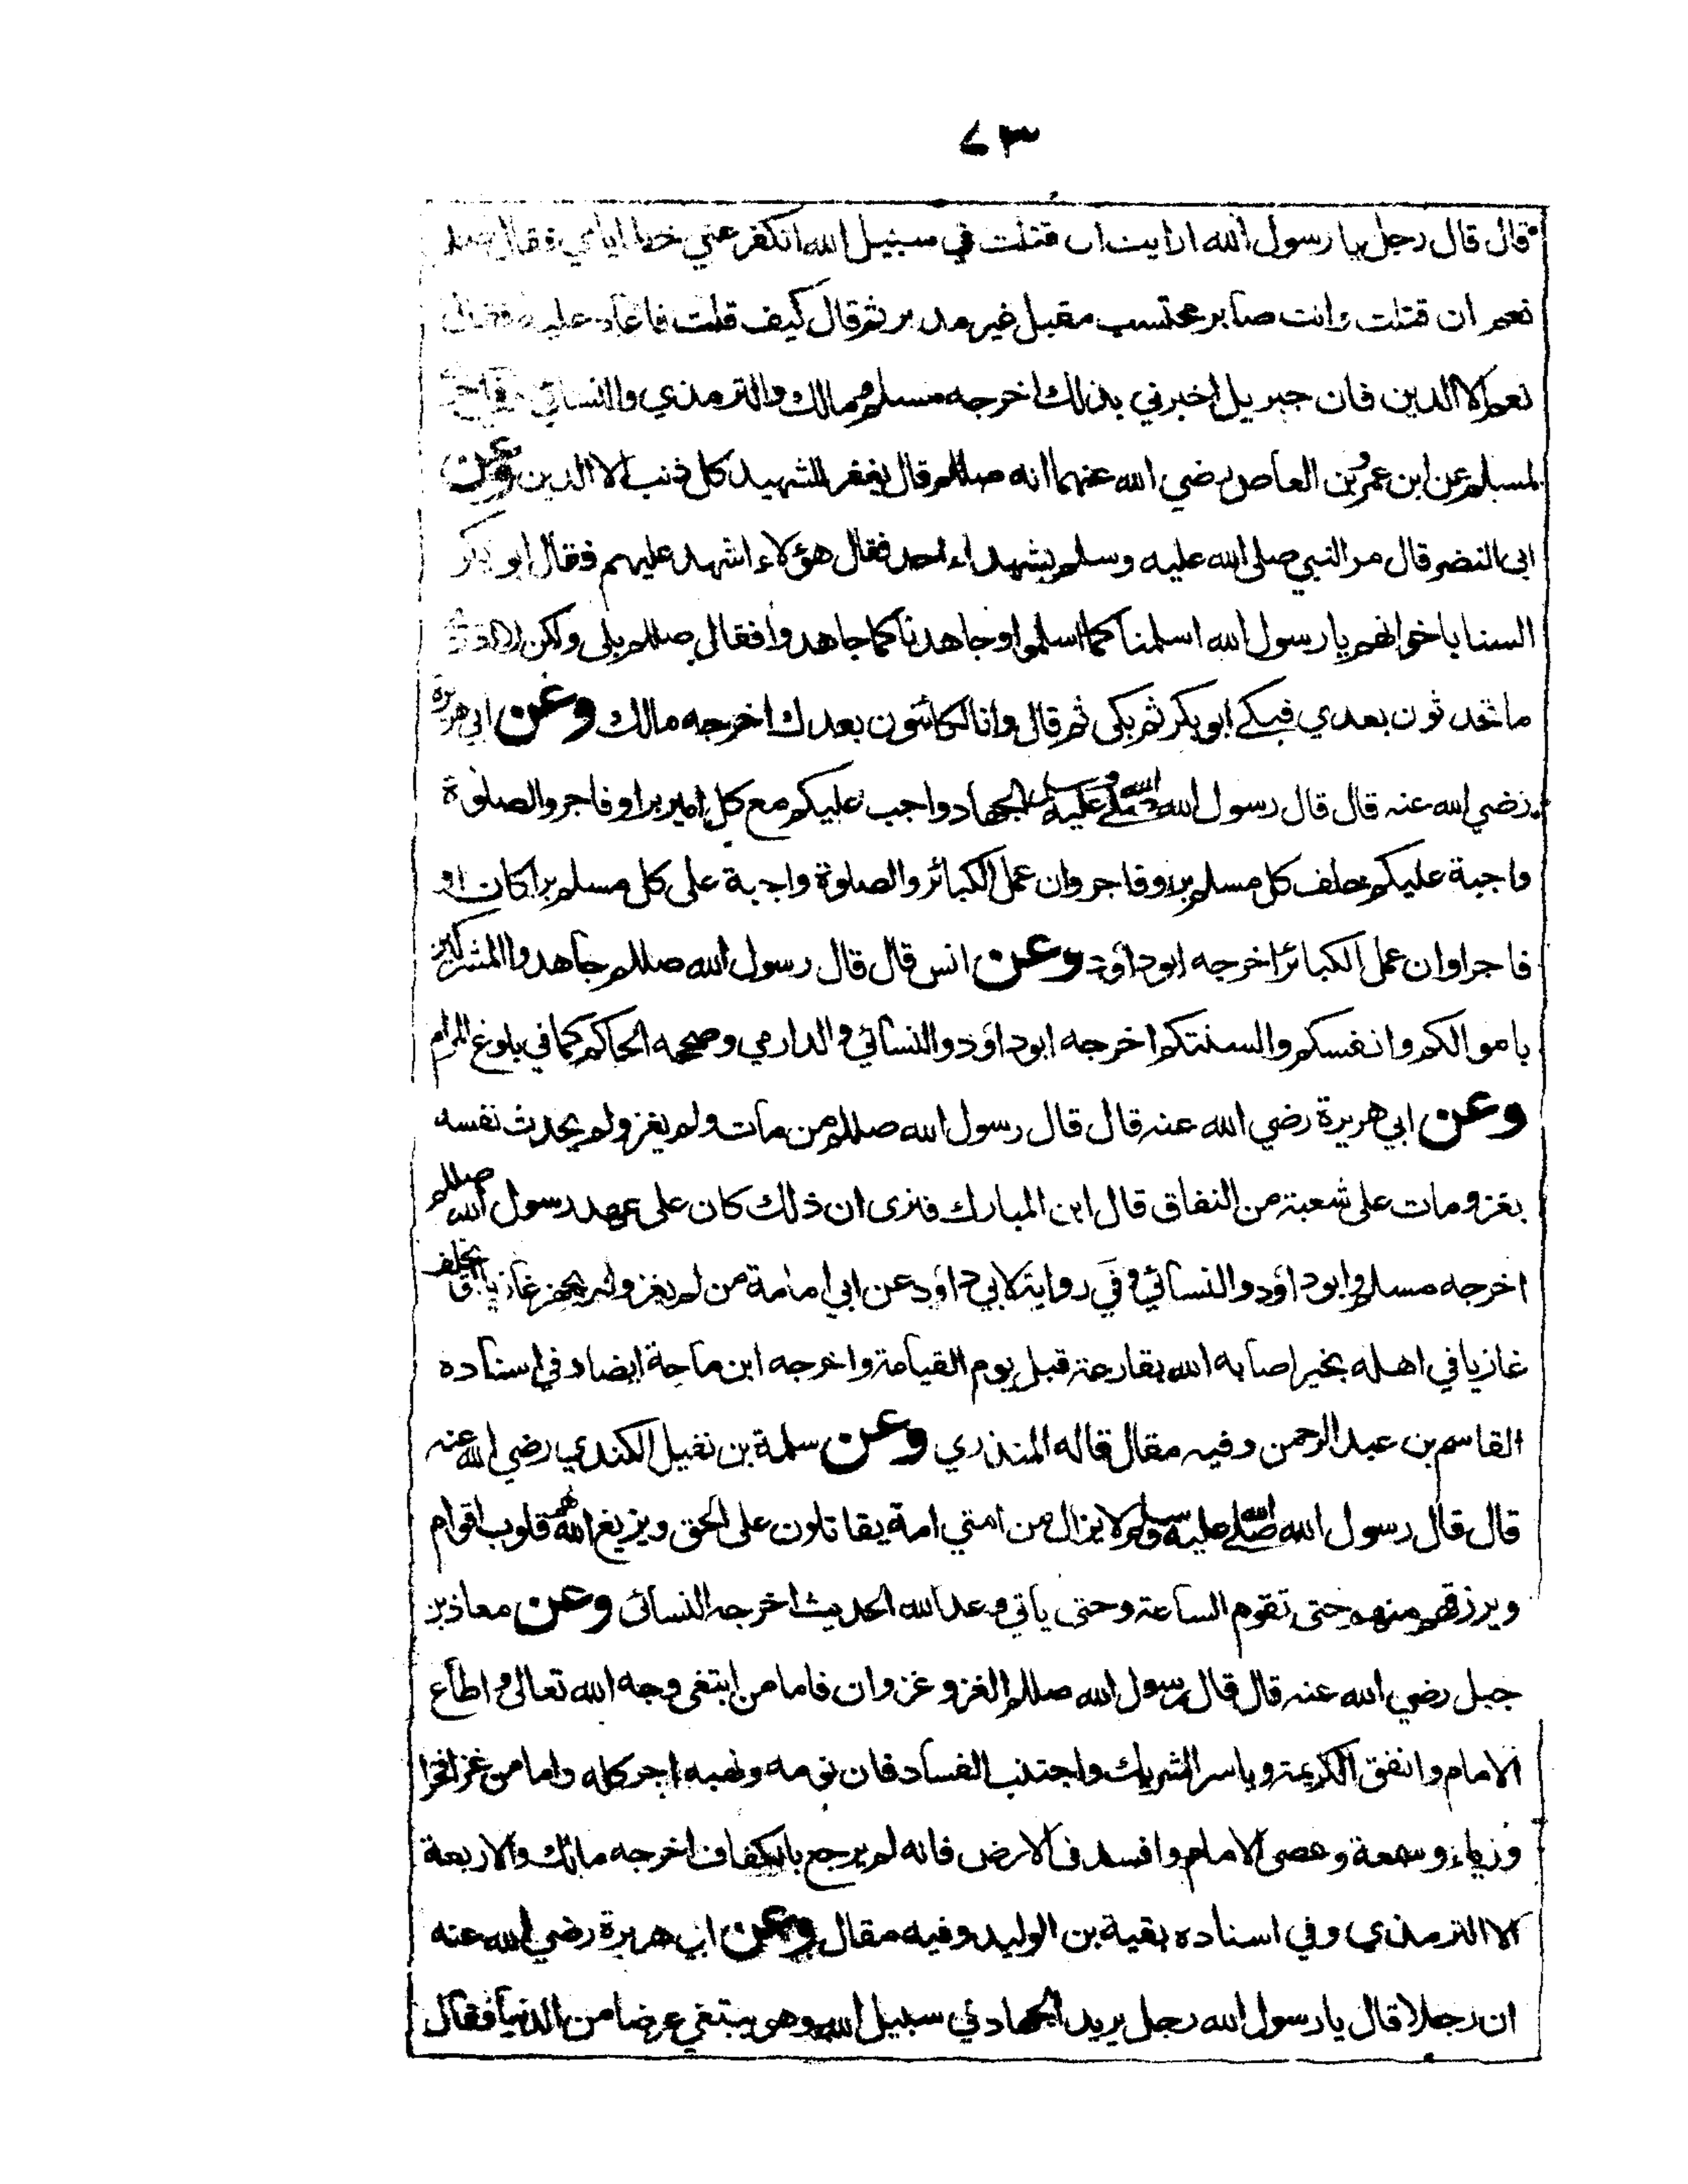 ٧٣
قال قال رجل يا رسول الله ارايت ان قتلت في سبيل الله اتكفر عني خطاياي فقال
نعم ان قتلت وانت صابر محتسب مقبل غير مدبر ثم قال كيف قلت فاعاد عليه فقال
نعم الا الدين فان جبريل اخبرني بذلك اخرجه مسلم ومالك والترمذي والنسائي
لمسلم عن ابن عمرو بن العاص رضي الله عنهما انه صللم قال يغفر للشهيد كل ذنب الا الدين وعن
ابى النضر قال مر النبي صلى الله عليه وسلم بشهداء احد فقال هؤلاء اشهد عليهم فقال ابو بكر
السنا باخوانهم يا رسول الله اسلمنا كما اسلموا وجاهدنا كما جاهدوا فقال صللم بلى ولكن لا
ما تحدثون بعدي فبكى ابو بكر ثم بكى ثم قال وانا لكائنون بعدك اخرجه مالك وعن ابي هريرة
رضي الله عنه قال قال رسول الله صلى الله عليه وسلم الجهاد واجب عليكم مع كل امير برا وفاجر والصلوة
واجبة عليكم خلف كل مسلم بر وفاجر وان عمل الكبائر والصلوة واجبة على كل مسلم برا كان او
فاجرا وان عمل الكبائر اخرجه ابو داؤد وعن انس قال قال رسول الله صللم جاهدوا المشركين
باموالكم وانفسكم والسنتكم اخرجه ابو داؤد والنسائي والدارمي وصححه الحاكم كما في بلوغ المرام
وعن ابي هريرة رضي الله عنه قال قال رسول الله صللم من مات ولم يغز ولم يحدث نفسه
بغزو مات على شعبة من النفاق قال ابن المبارك فنرى ان ذلك كان على عهد رسول الله صللم
اخرجه مسلم وابو داؤد والنسائي وفي رواية لابي داؤد عن ابي امامة من لم يغز ولم يجهز غازيا او يخلف
غازيا في اهله بخير اصابه الله بقارعة قبل يوم القيامة واخرجه ابن ماجة ايضا وفي اسناده
القاسم بن عبد الرحمن وفيه مقال قاله المنذري وعن سلمة بن نفيل الكندي رضي الله عنه
قال قال رسول الله صلى الله عليه وسلم لا يزال من امتي امة يقاتلون على الحق ويزيغ الله لهم قلوب اقوام
ويرزقهم منهم حتى تقوم الساعة وحتى ياتي وعد الله الحديث اخرجه النسائى وعن معاذ بن
جبل رضي الله عنه قال قال رسول الله صللم الغزو غزوان فاما من ابتغى وجه الله تعالى واطاع
الامام وانفق الكريمة وياسر الشريك واجتنب الفساد فان نومه ونبهه اجر كله واما من غزا فخرا
ورياء وسمعة وعصى الامام وافسد فى الارض فانه لم يرجع بالكفاف اخرجه مالك والاربعة
الا الترمذي وفي اسناده بقية بن الوليد وفيه مقال وعن ابي هريرة رضي الله عنه
ان رجلا قال يا رسول الله رجل يريد الجهاد في سبيل الله وهو يبتغي عرضا من الدنيا فقال